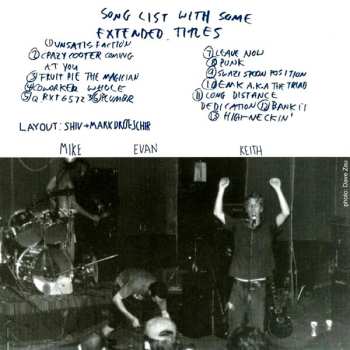 SONG LIST WITH SOME
EXTENDED TITLES
① UNSATISFACTION
② CRAZY COOTER COMING
AT YOU
③ FRUIT PIE THE MAGICIAN
④ COWORKER WHOLE
⑤ Q RXT 6572 ⑥
⑦ LEAVE NOW
⑧ PUNK
⑨ SWAZI SPOON POSITION
⑩ EMK A.K.A THE TRIAD
⑪ LONG DISTANCE
DEDICATION ⑫ BANK!!
⑬ HIGH-NECKIN'
LAYOUT: SHIV + MARK
MIKE EVAN KEITH
photo: Dave Zau